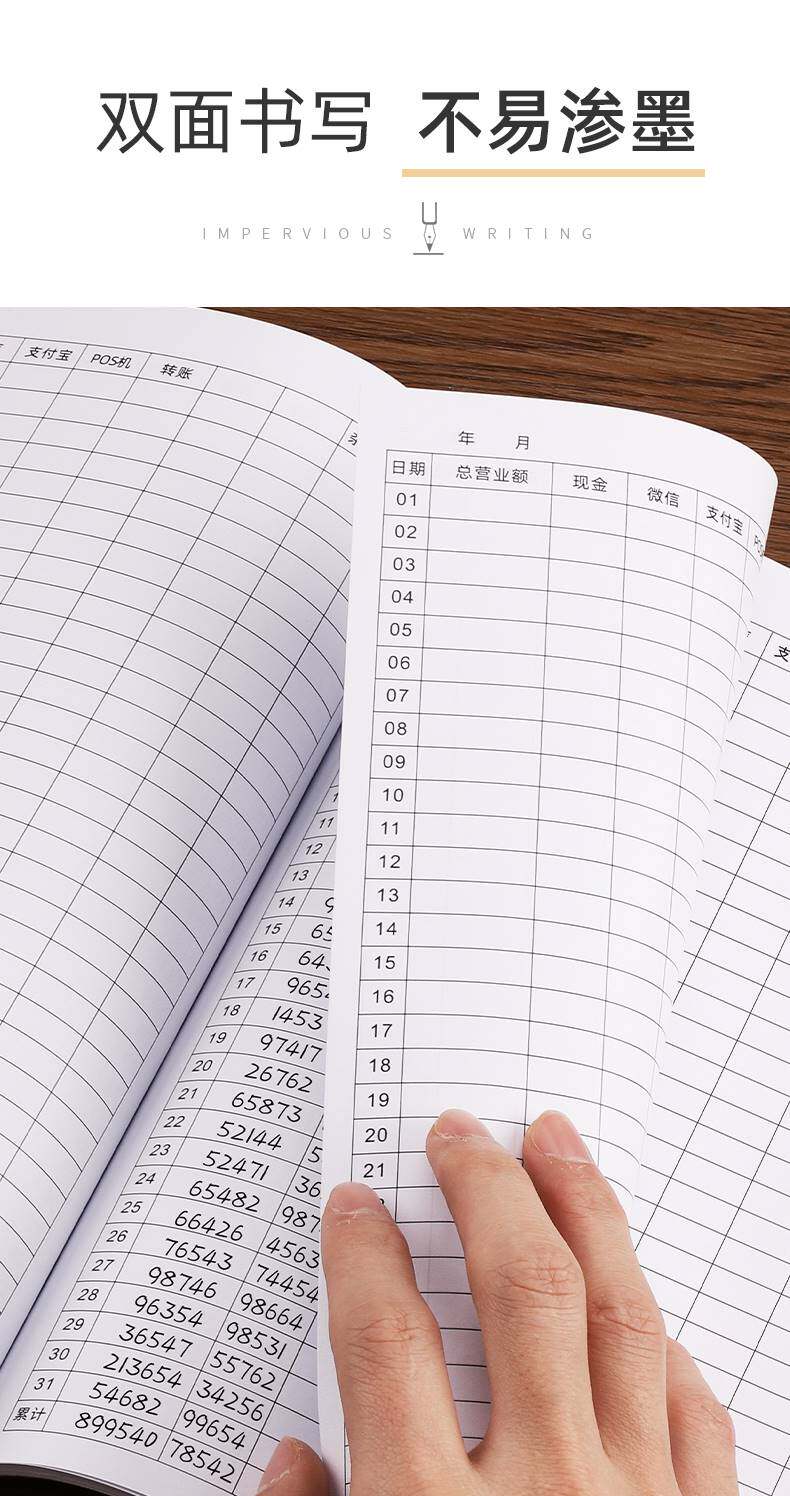 双面书写 不易渗墨
IMPERVIOUS WRITING
支付宝 POS机 转账
年 月
日期 总营业额 现金 微信 支付宝
01
02
03
04
05
06
07
08
09
10
11
12
13
14
15
16
17
18
19
20
21
11
12
13
14
15
16
17
18 1453
19 97417
20 26762
21 65873
22 52144
23 52471
24 65482
25 66426
26 76543
27 98746 74454
28 96354 98664
29 36547 98531
30 213654 55762
31 54682 34256
累计 899540 99654
78542